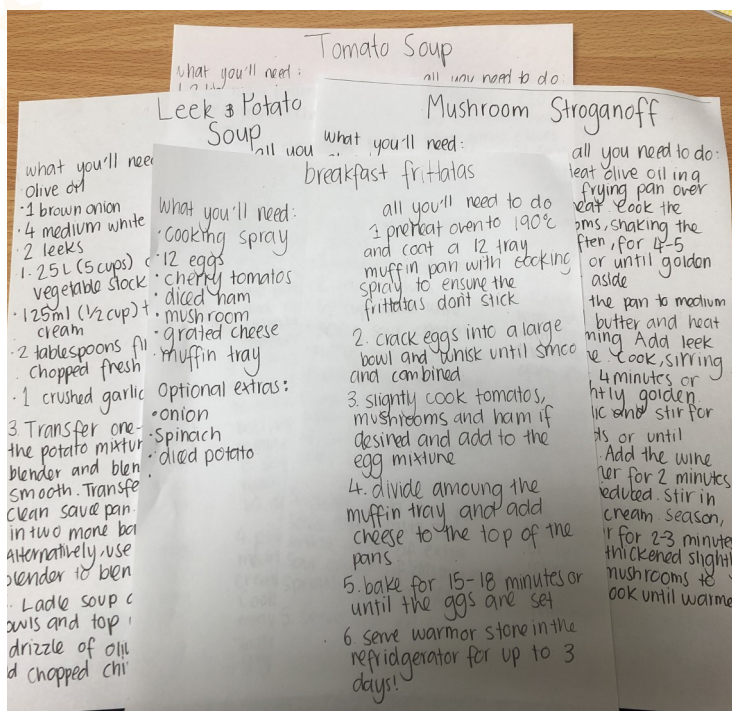 Tomato Soup
what you'll need:
all you need to do:
Leek & Potato
Soup
all you
what you'll need
olive oil
·1 brown onion
·4 medium white
·2 leeks
1.25L (5 cups)
vegetable stock
·125ml (1/2 cup) t
cream
·2 tablespoons fi
chopped fresh
·1 crushed garlic
3. Transfer one-
the potato mixtur
blender and blen
smooth. Transfe
clean sauce pan.
in two more ba
Alternatively, use
blender to blen
Ladle soup
owls and top
drizzle of oliv
d chopped chi
Mushroom Stroganoff
what you'll need:
all you need to do:
Heat olive oil in a
frying pan over
heat. Cook the
oms, shaking the
ften, for 4-5
or until golden
aside
the pan to medium
butter and heat
ming Add leek
Cook, sirring
4 minutes or
htly golden.
lic and stir for
ds or until
Add the wine
er for 2 minutes
reduced. Stir in
cream. Season,
r for 2-3 minute
thickened slightl
mushrooms to
ook until warme
breakfast frittatas
What you'll need:
·Cooking spray
·12 eggs
·cherry tomatos
·diced ham
·mushroom
·grated cheese
·muffin tray
Optional extras:
·onion
·Spinach
·diced potato
all you'll need to do
1 preheat oven to 190°c
and coat a 12 tray
muffin pan with cooking
spray to ensure the
frittatas dont stick
2. crack eggs into a large
bowl and whisk until smoo
and combined
3. slightly cook tomatos,
mushrooms and ham if
desired and add to the
egg mixture
4. divide amoung the
muffin tray and add
cheese to the top of the
pans
5. bake for 15-18 minutes or
until the ggs are set
6. serve warm or store in the
refridgerator for up to 3
days!